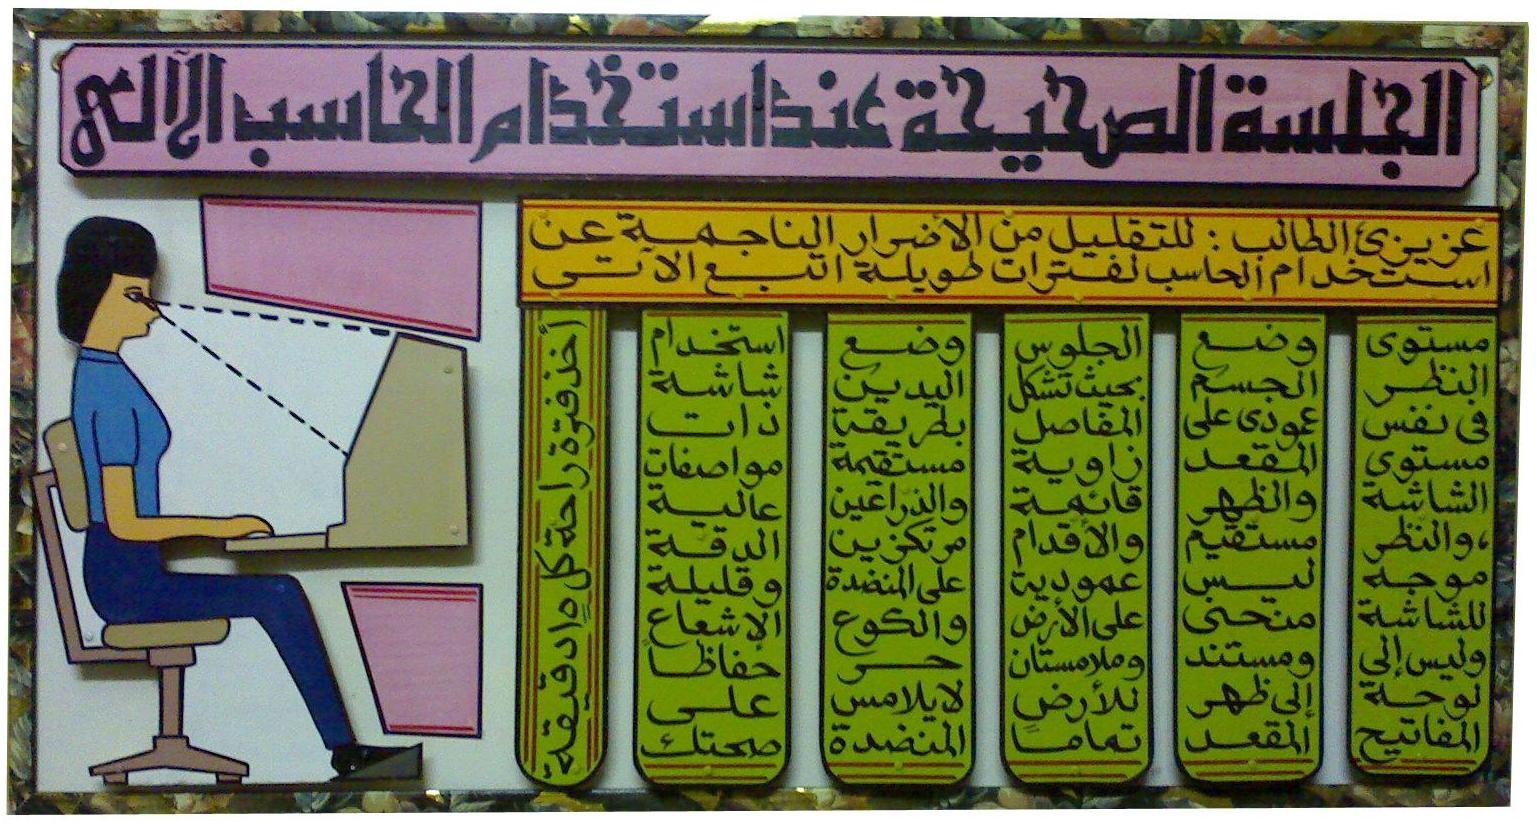 الجلسة الصحيحة عند استخدام الحاسب الآلى
عزيزى الطالب : للتقليل من الأضرار الناجمة عن
استخدام الحاسب لفترات طويلة اتبع الآتى
مستوى
النظر
فى نفس
مستوى
الشاشة
، والنظر
موجه
للشاشة
وليس إلى
لوحة
المفاتيح
وضع
الجسم
عمودى على
المقعد
والظهر
مستقيم
ليس
منحنى
ومستند
إلى ظهر
المقعد
الجلوس
بحيث تشكل
المفاصل
زاوية
قائمة
والأقدام
عمودية
على الأرض
وملامستان
للأرض
تماما
وضع
اليدين
بطريقة
مستقيمة
والذراعين
مرتكزين
على المنضدة
والكوع
حر
لايلامس
المنضدة
استخدام
شاشة
ذات
مواصفات
عالية
الدقة
وقليلة
الإشعاع
حفاظا
على
صحتك
أخذ فترة راحة كل ١٥ دقيقة